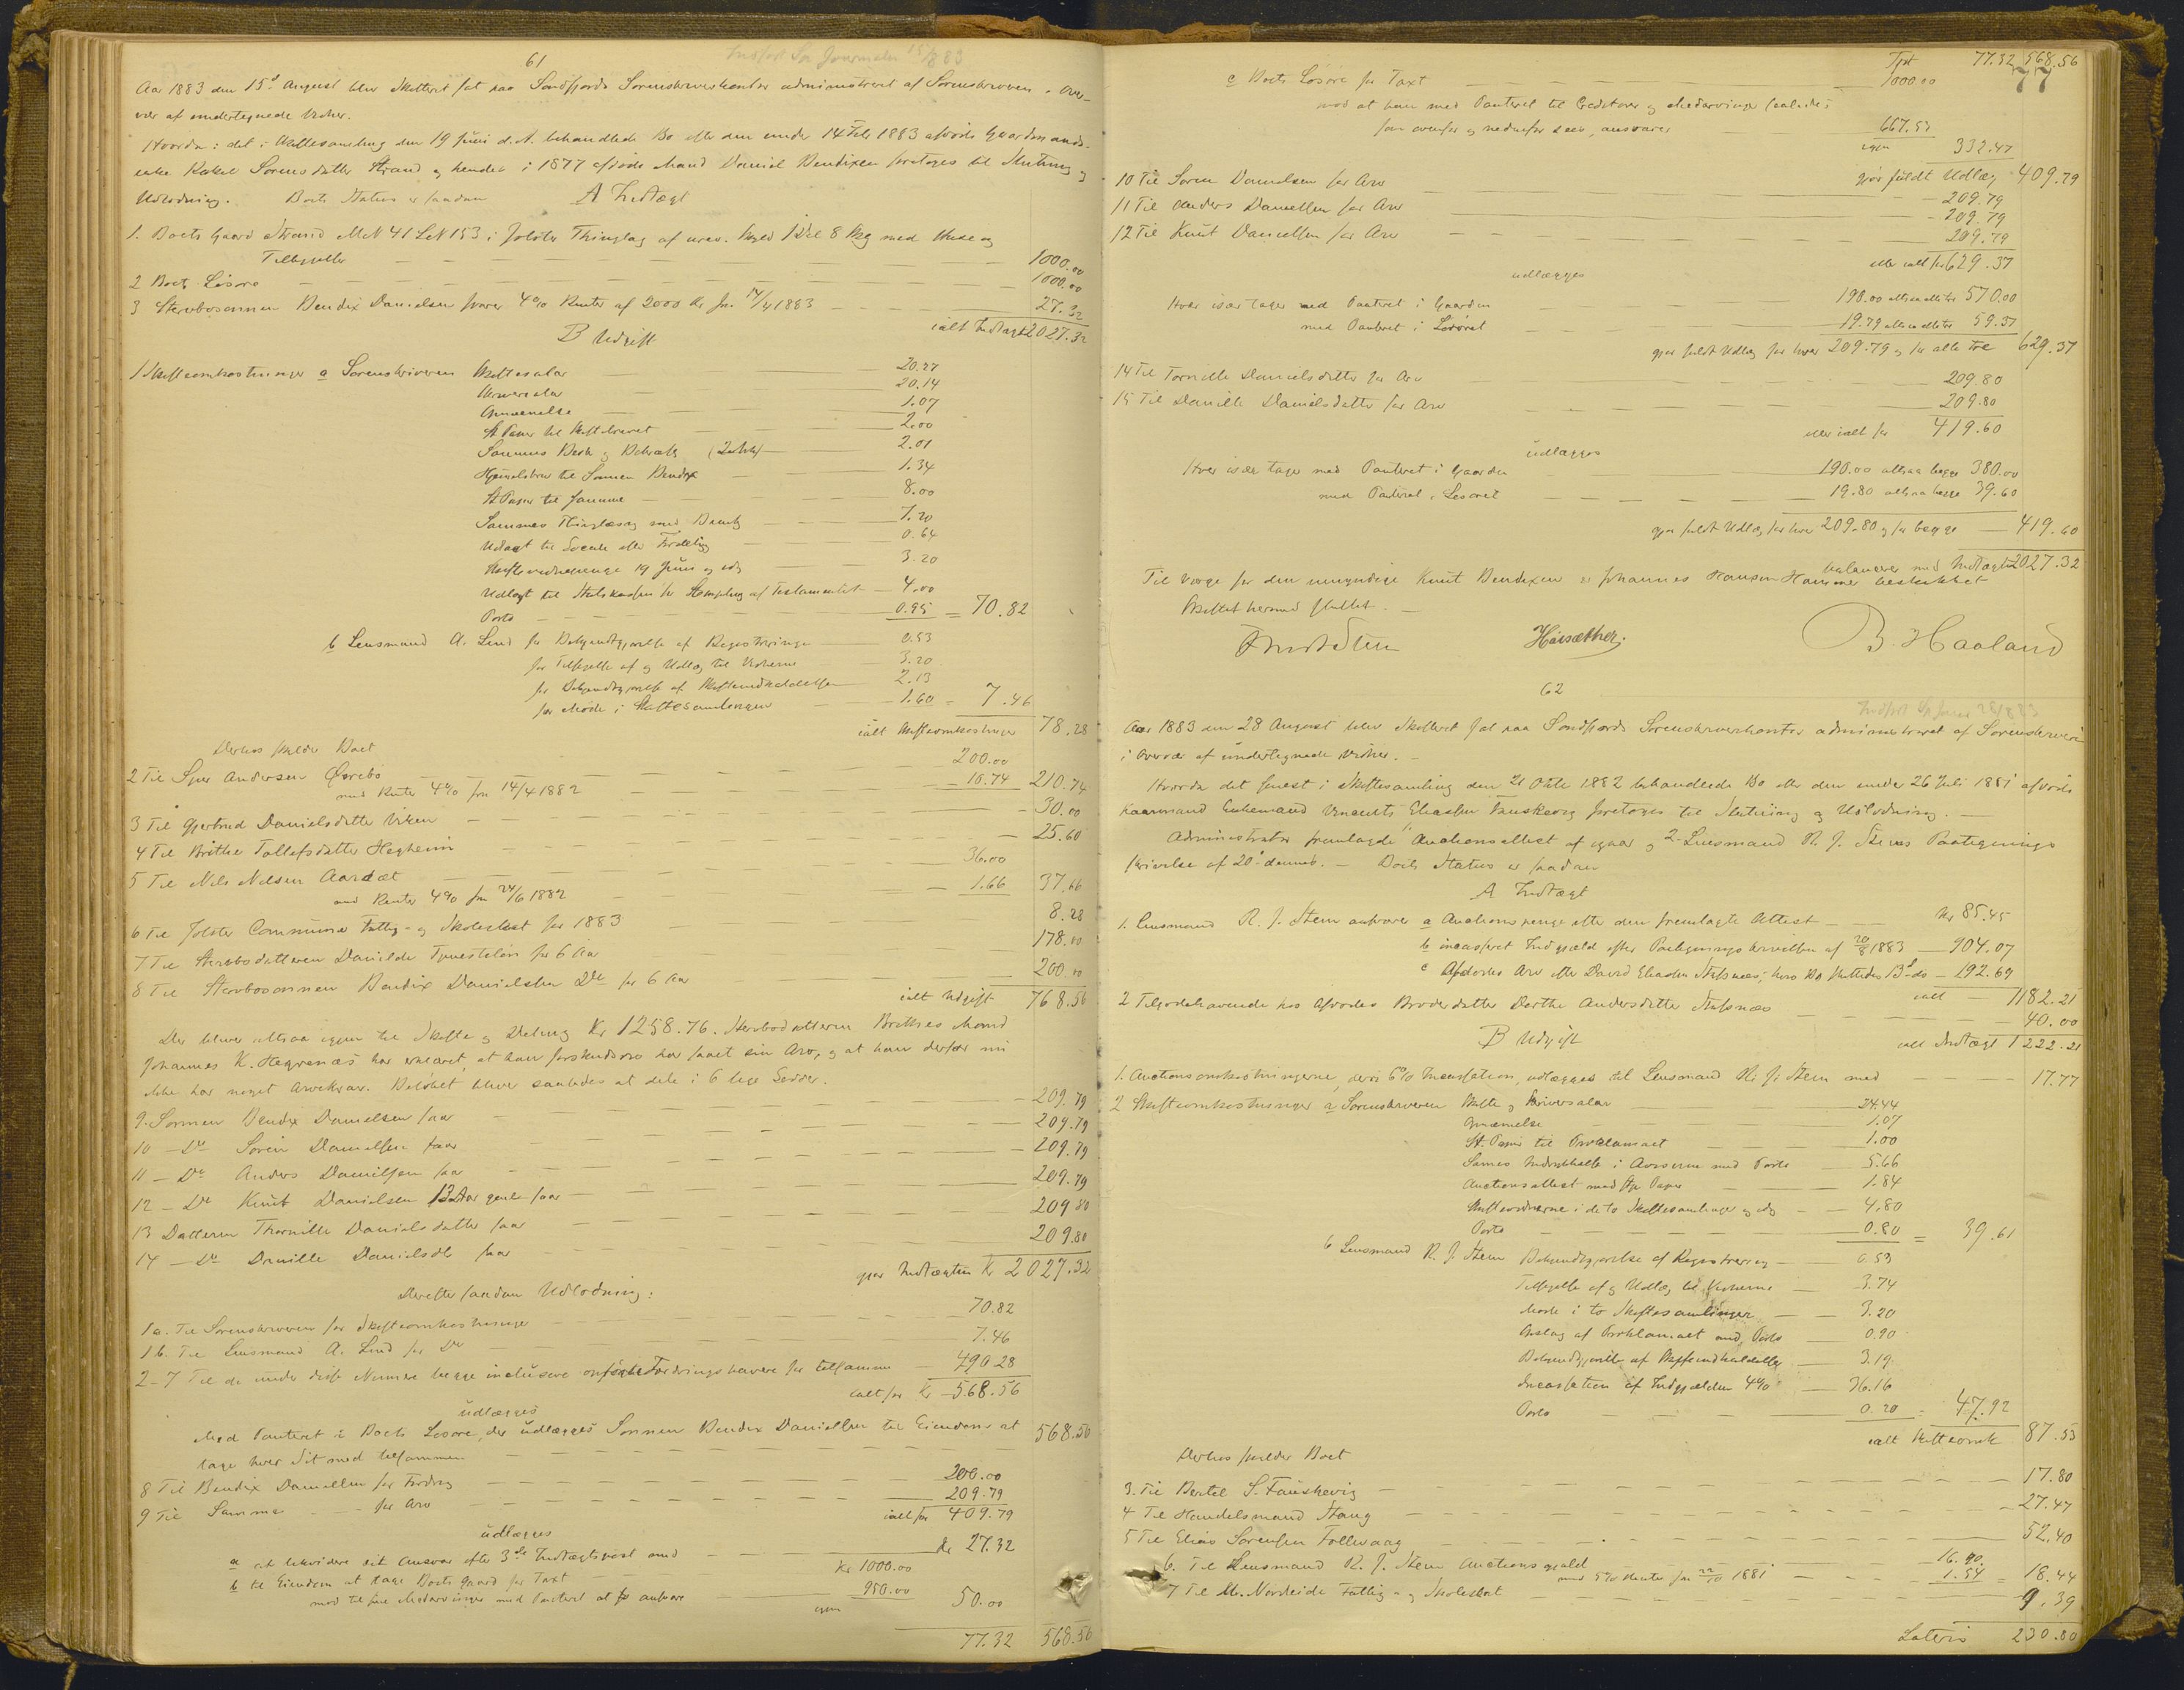 61
Indført i Journalen 15/8 83
Aar 1883 den 15d August blev Skifteret sat paa Søndfjords Sorenskriverkontor administreret af Sorenskriveren i Over-
vær af undertegnede Vidner.
Hvorda: det i Skiftesamling den 19 Juni d.A. behandlede Bo efter den under 14 Feb 1883 afdøde Gaardmands-
enke Rakel Sørensdatter Strand og hendes i 1877 afdøde Mand Daniel Bendixen foretoges til Slutning og
Udlodning. Boets Status er saadan
A Indtægt
1. Boets Gaard Strand MN 41 LN 153 i Jølster Thinglag af urev. Skyld 1 Dlr 8 Skg med Huse og
Tilbehør 1000.00
2 Boets Løsøre 1000.00
3 Stervbosønnen Bendix Danielsen svarer 4% Renter af 2000 Kr fra 14/4 1883 27.32
ialt Indtægt 2027.32
B Udgift
1 Skifteomkostninger a Sorenskriveren Skiftesalær 20.27
Skriversalær 20.14
Gjennemelse 1.07
St Papir til Skiftebrevet 2.00
Sammes Beskr og Bekræft 2.01
Hjemmelsbrev til Sønnen Bendix 1.34
St Papir til samme 8.00
Sammes Thinglæsng med Bevidn 7.20
Udlagt til Locale efter Fordeling 0.64
Skiftevidnepenge 19 Juni og idag 3.20
Udlagt til Statskassen for Stempling af Testamentet 4.00
Porto 0.95 = 70.82
b Lensmand A. Lind for Bekjendtgjørelse af Registreringen 0.53
for Tilsigelse af og Udlæg til Vidnerne 3.20
for Bekjendtgjørelse af Skifteindkaldelsen 2.13
for Møde i Skiftesamlingen 1.60 = 7.46
ialt Skifteomkostninger 78.28
Derhos skylder Boet
2 Til Sjur Andersen Øvrebø 200.00
med Renter 4% fra 14/4 1882 10.74 210.74
3 Til Gjertrud Danielsdatter Viken 30.00
4 Til Brithe Tollefsdatter Hegheim 25.60
5 Til Nils Nilsen Aardal 36.00
med Renter 4% fra 24/6 1882 1.66 37.66
6 Til Jølster Commune Fattig- og Skoleskat for 1883 8.28
7 Til Stervbodatteren Danielde Tjenesteløn for 6 Aar 178.00
8 Til Stervbosønnen Bendix Danielsen Do for 6 Aar 200.00
ialt Udgift 768.56
Der bliver altsaa igjen til Skifte og Deling Kr 1258.76. Stervbodatteren Brithes Mand
Johannes K. Hegrenæs har erklæret, at han forskudsvis har faaet sin Arv, og at han derfor nu
ikke har noget Arvekrav. Beløbet bliver saaledes at dele i 6 lige Lodder.
9. Sønnen Bendix Danielsen faar 209.79
10 – Do Søren Danielsen faar 209.79
11 – Do Anders Danielsen faar 209.79
12 – Do Knut Danielsen 13 Aar gml faar 209.79
13 Datteren Thornille Danielsdatter faar 209.80
14 – Do Danille Danielsdtr faar 209.80
gjør Indtægten Kr 2027.32
Derefter saadan Udlodning:
1a. Til Sorenskriveren for Skifteomkostninger 70.82
1b. Til Lensmand A. Lind for Do 7.46
2–7 Til de under disse Numere begge inclusive opførte Fordringshavere for tilsammen 490.28
ialt for Kr 568.56
udlægges
Med Panteret i Boets Løsøre, der udlægges Sønnen Bendix Danielsen til Eiendom at
tage hver Sit med tilsammen 568.56
8 Til Bendix Danielsen for Fordring 200.00
9 Til Samme for Arv 209.79
ialt for 409.79
udlægges
a at likvidere sit Ansvar efter 3die Indtægtspost med Kr 27.32
b til Eiendom at tage Boets Gaard for Taxt Kr 1000.00
mod til sine Medarvinger med Panteret at ansvare 950.00
igjen 50.00
77.32 568.56
77
Tpt 77.32 568.56
c Boets Løsøre for Taxt 1000.00
mod at han med Panteret til Creditorer og Medarvinger saaledes
som ovenfor og nedenfor sees, ansvarer 667.53
igjen 332.47
gjør fuldt Udlæg 409.79
10 Til Søren Danielsen for Arv 209.79
11 Til Anders Danielsen for Arv 209.79
12 Til Knut Danielsen for Arv 209.79
eller ialt for 629.37
udlægges
Hver især tager med Panteret i Gaarden 190.00 altsaa alle tre 570.00
med Panteret i Løsøret 19.79 altsaa alle tre 59.37
gjør fuldt Udlæg for hver 209.79 og for alle tre 629.37
14 Til Tornille Danielsdatter for Arv 209.80
15 Til Danille Danielsdatter for Arv 209.80
eller ialt for 419.60
udlægges
Hver især tager med Panteret i Gaarden 190.00 altsaa begge 380.00
med Panteret i Løsøret 19.80 altsaa begge 39.60
gjør fuldt Udlæg for hver 209.80 og for begge 419.60
balancerer med Indtægten 2027.32
Til Værge for den umyndige Knut Bendixen er Johannes Hansen Hammer beskikket
Skiftet hermed sluttet.
Høisæther.
B. Haaland
62
Indført i Journ 28/8 83
Aar 1883 den 28 August blev Skifteret sat paa Søndfjords Sorenskriverkontor administreret af Sorenskriveren
i Overvær af undertegnede Vidner.
Hvorda det senest i Skiftesamling den 21 Oktb 1882 behandlede Bo efter den under 26 Juli 1881 afdøde
Kaarmand Enkemand Vincents Eliassen Fauskevig foretoges til Slutning og Udlodning.
Administrator fremlagde 1 Auctionsattest af igaar og 2 Lensmand R. J. Steens Paategnings
skrivelse af 20d dennes. – Boets Status er saadan
A Indtægt
1. Lensmand R. J. Steen ansvarer a Auctionspenge efter den fremlagte Attest Kr 85.45
b incasseret Indgjæld efter Paategningsskrivelsen af 20/8 1883 904.07
c Afdødes Arv efter David Eliassen Stafsnæs, hvis Bo sluttedes 13d ds 192.69
ialt 1182.21
2 Tilgodehavende hos Afdødes Broderdatter Dorthe Andersdatter Stafsnæs 40.00
ialt Indtægt 1222.21
B Udgift
1. Auctionsomkostningerne, deri 6% Incassation, udlægges til Lensmand R. J. Steen med 17.77
2 Skifteomkostninger a Sorenskriveren Skifte og Skriversalær 24.44
Gjennemelse 1.07
St. Papir til Proklamaet 1.00
Sammes Indrykkelse i Aviserne med Porto 5.66
Auctionsattest med Stp Papir 1.84
Skiftevidnerne i de to Skiftesamlinger og idag 4.80
Porto 0.80 = 39.61
b Lensmand R. J. Steen Bekjendtgjørelse af Registrering 0.53
Tilsigelse af og Udlæg til Vidnerne 3.74
Møde i to Skiftesamlinger 3.20
Opslag af Proklamaet med Porto 0.90
Bekjendtgjørelse af Skifteindkaldelser 3.19
Incassation af Indgjælden 4% 36.16
Porto 0.20 = 47.92
ialt Skifteomk 87.53
Derhos skylder Boet
3. Til Bertel S. Fauskevig 17.80
4 Til Handelsmand Stang 27.47
5 Til Elias Sørensen Follevaag 52.40
6. Til Lensmand R. J. Steen Auctionsgjæld 16.90
med 5% Renter fra 22/10 1881 1.54 = 18.44
7 Til M. Nordeide Fattig- og Skoleskat 9.39
Lateris 230.80